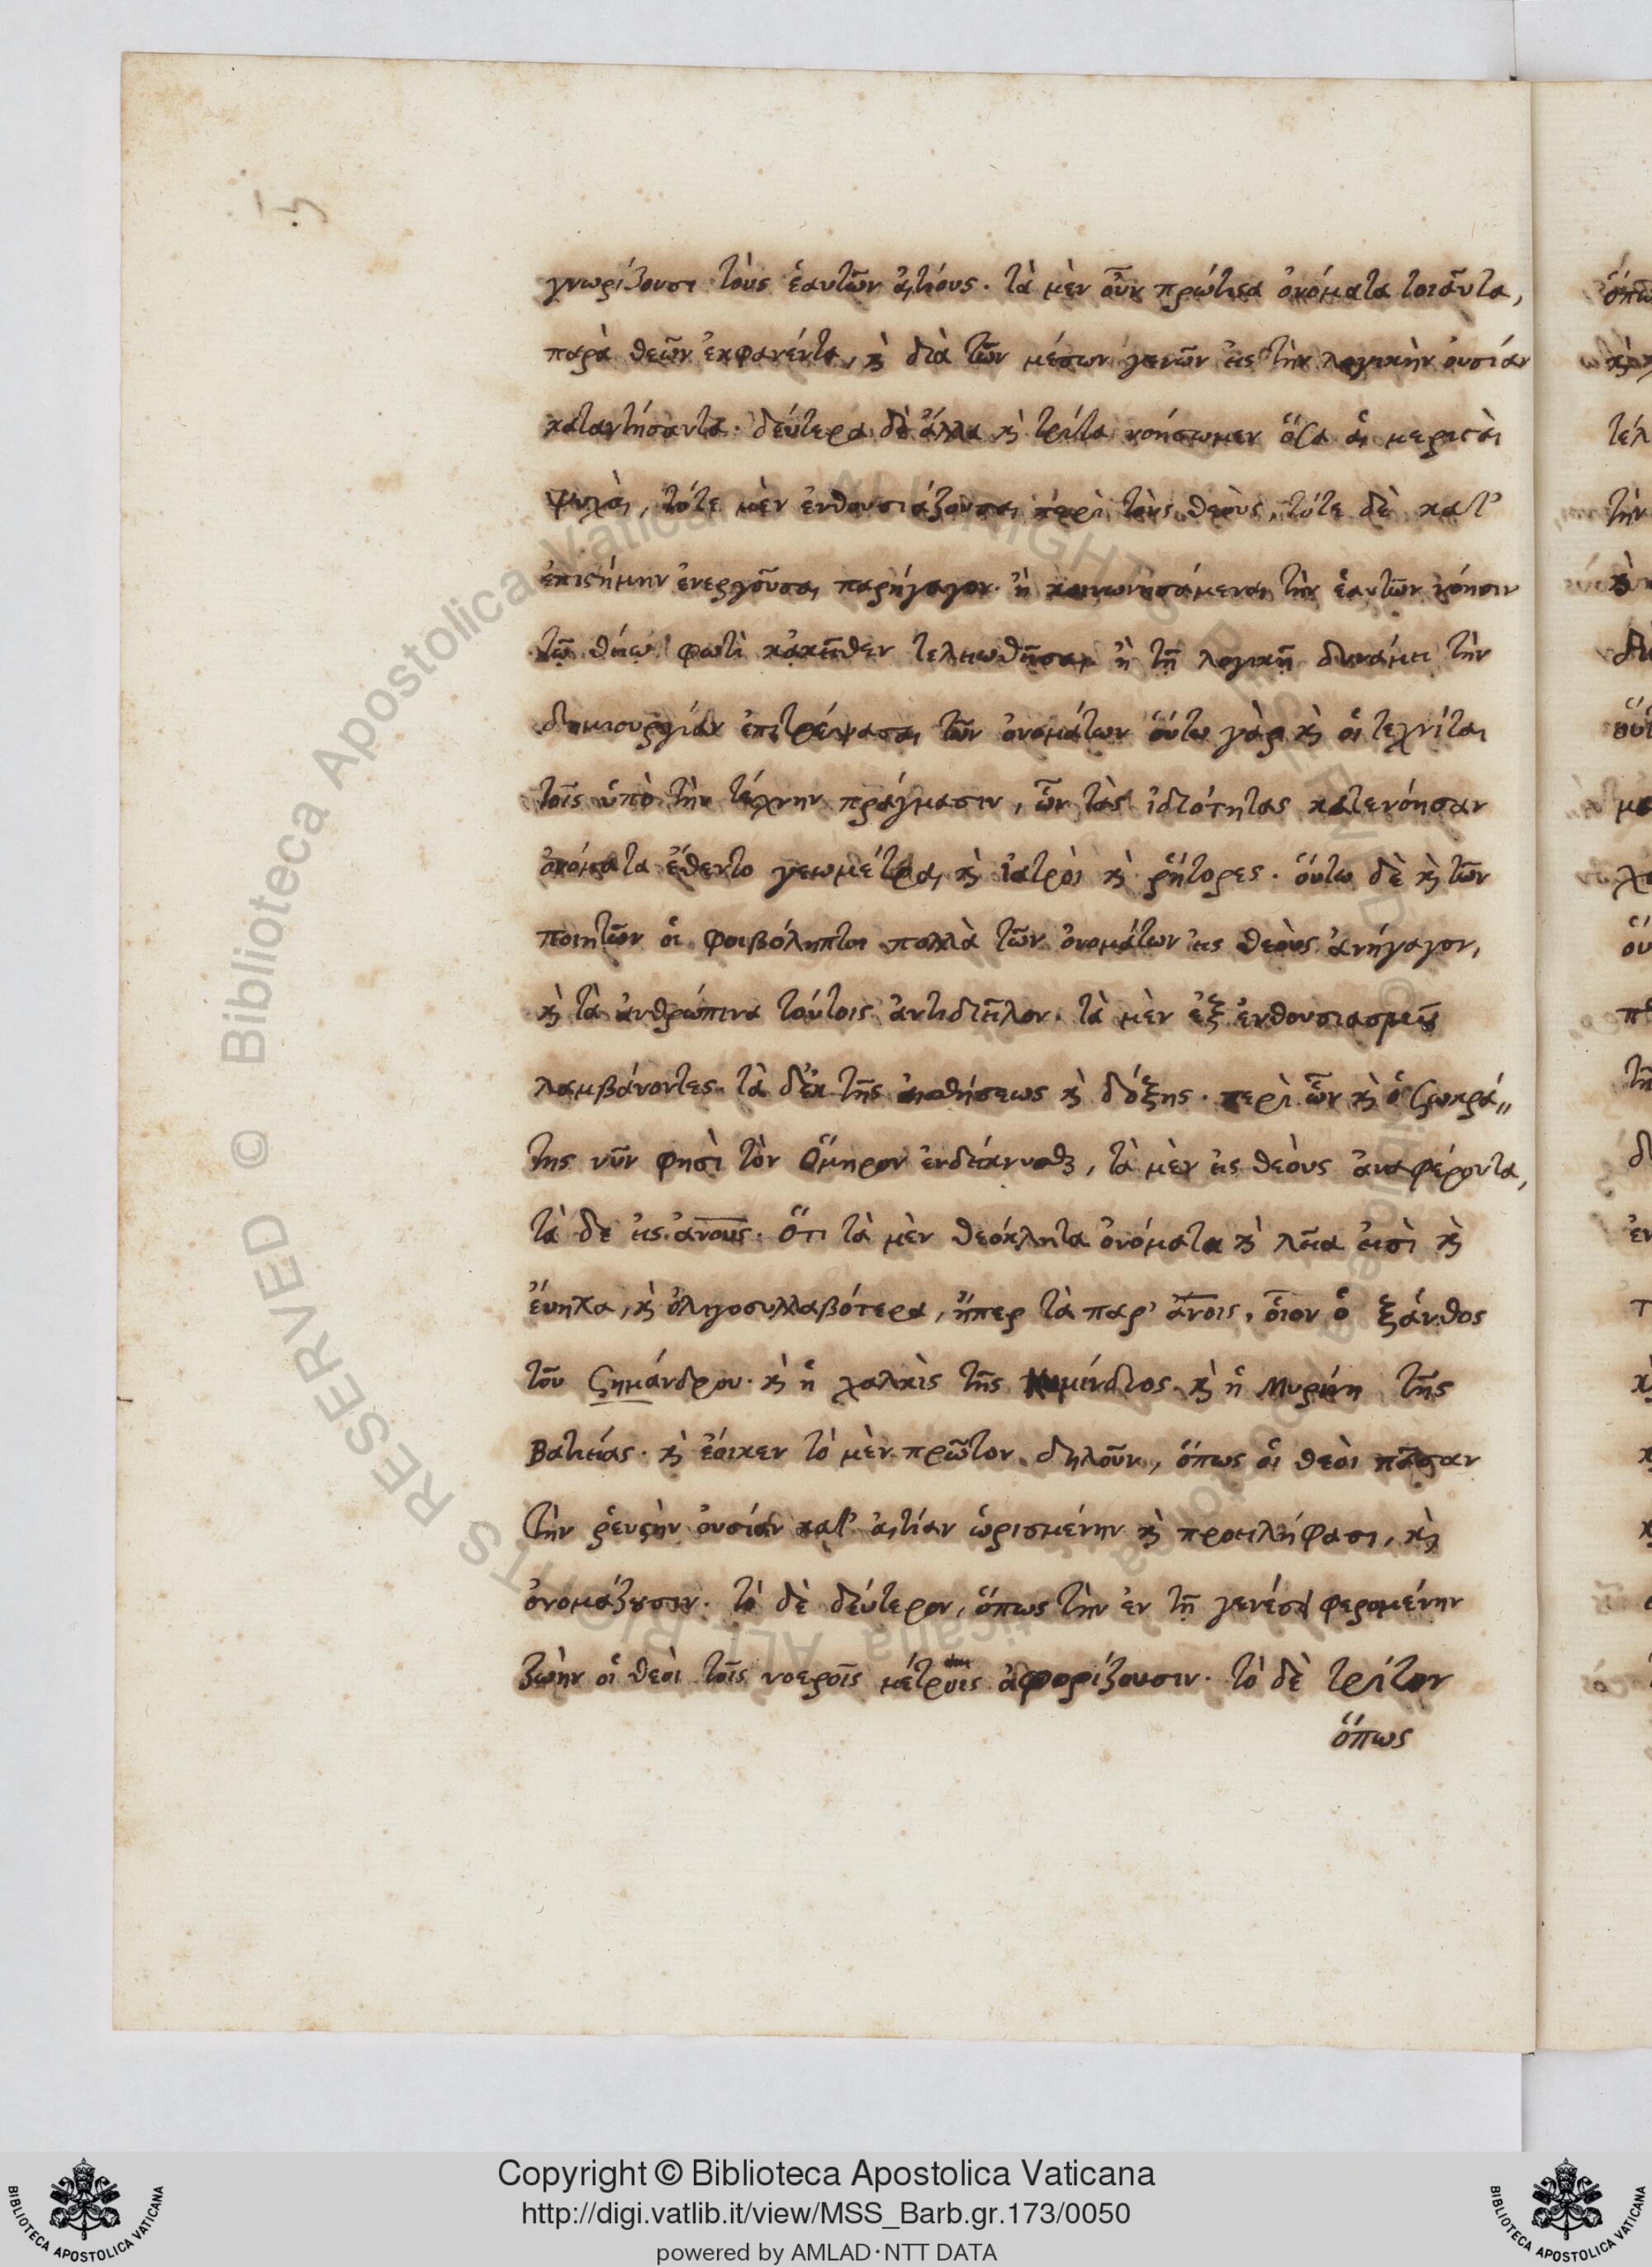 γνωρίζουσι τοὺς ἑαυτῶν αἰτίους· τὰ μὲν οὖν πρώτιςα ὀνόματα τοιαῦτα,
παρὰ θεῶν ἐκφανέντα, κὶ διὰ τῶν μέσων γενῶν εἰς τὴν λογικὴν οὐσίαν
καταντήσαντα· δεύτερα δὲ ἄλλα κὶ τρίτα νοήσωμεν ὅσα αἱ μερικαὶ
ψυχαὶ, τότε μὲν ἐνθουσιάζουσαι περὶ τοὺς θεοὺς, τότε δὲ κατ'
ἐπιςήμην ἐνεργοῦσαι παρήγαγον· ἢ κοινωνησάμεναι τὴν ἑαυτῶν νόησιν
τῷ θείῳ φωτὶ κἀκεῖθεν τελειωθεῖσαι ἢ τῇ λογικῇ δυνάμει τὴν
δημιουργίαν ἐπιτρέψασαι τῶν ὀνομάτων οὕτω γὰρ κὶ οἱ τεχνίται
τοῖς ὑπὸ τὴν τέχνην πράγμασιν, ὧν τὰς ἰδιότητας κατενόησαν
ὀνόματα ἔθεντο γεωμέτραι κὶ ἰατροὶ κὶ ῥήτορες· οὕτω δὲ κὶ τῶν
ποιητῶν οἱ φοιβόληπτοι πολλὰ τῶν ὀνομάτων εἰς θεοὺς ἀνήγαγον,
κὶ τὰ ἀνθρώπινα τούτοις ἀντιδιεῖλον· τὰ μὲν ἐξ ἐνθουσιασμοῦ
λαμβάνοντες· τὰ δ' ἐκ τῆς αἰσθήσεως κὶ δόξης· περὶ ὧν κὶ ὁ Σωκρά〃
της νῦν φησὶ τὸν Ὅμηρον ἐνδείκνυσθαι, τὰ μὲν εἰς θεοὺς ἀναφέροντα,
τὰ δε εἰς ἀνους· Ὅτι τὰ μὲν θεόκλητα ὀνόματα κὶ λεῖα εἰσὶ κὶ
εὐηχα, κὶ ὀλιγοσυλλαβότερα, ἤπερ τὰ παρ' ἀνοις, οἷον ὁ ξάνθος
τοῦ Σημάνδρου· κὶ ἡ χαλκὶς τῆς κυμίνδιος κὶ ἡ Μυρίνη τῆς
Βατιείας· κὶ ἔοικεν τὸ μὲν πρῶτον δηλοῦν, ὅπως οἱ θεοὶ πᾶσαν
τὴν ῥευςὴν οὐσίαν κατ' αἰτίαν ὡρισμένην κὶ προειλήφασι, κὶ
ὀνομάζουσιν· τὸ δὲ δεύτερον, ὅπως τὴν ἐν τῇ γενέσει φερομένην
ζωὴν οἱ θεοὶ τοῖς νοεροῖς μέτροις ἀφορίζουσιν· τὸ δὲ τρίτον
ὅπως
Copyright © Biblioteca Apostolica Vaticana
http://digi.vatlib.it/view/MSS_Barb.gr.173/0050
powered by AMLAD·NTT DATA